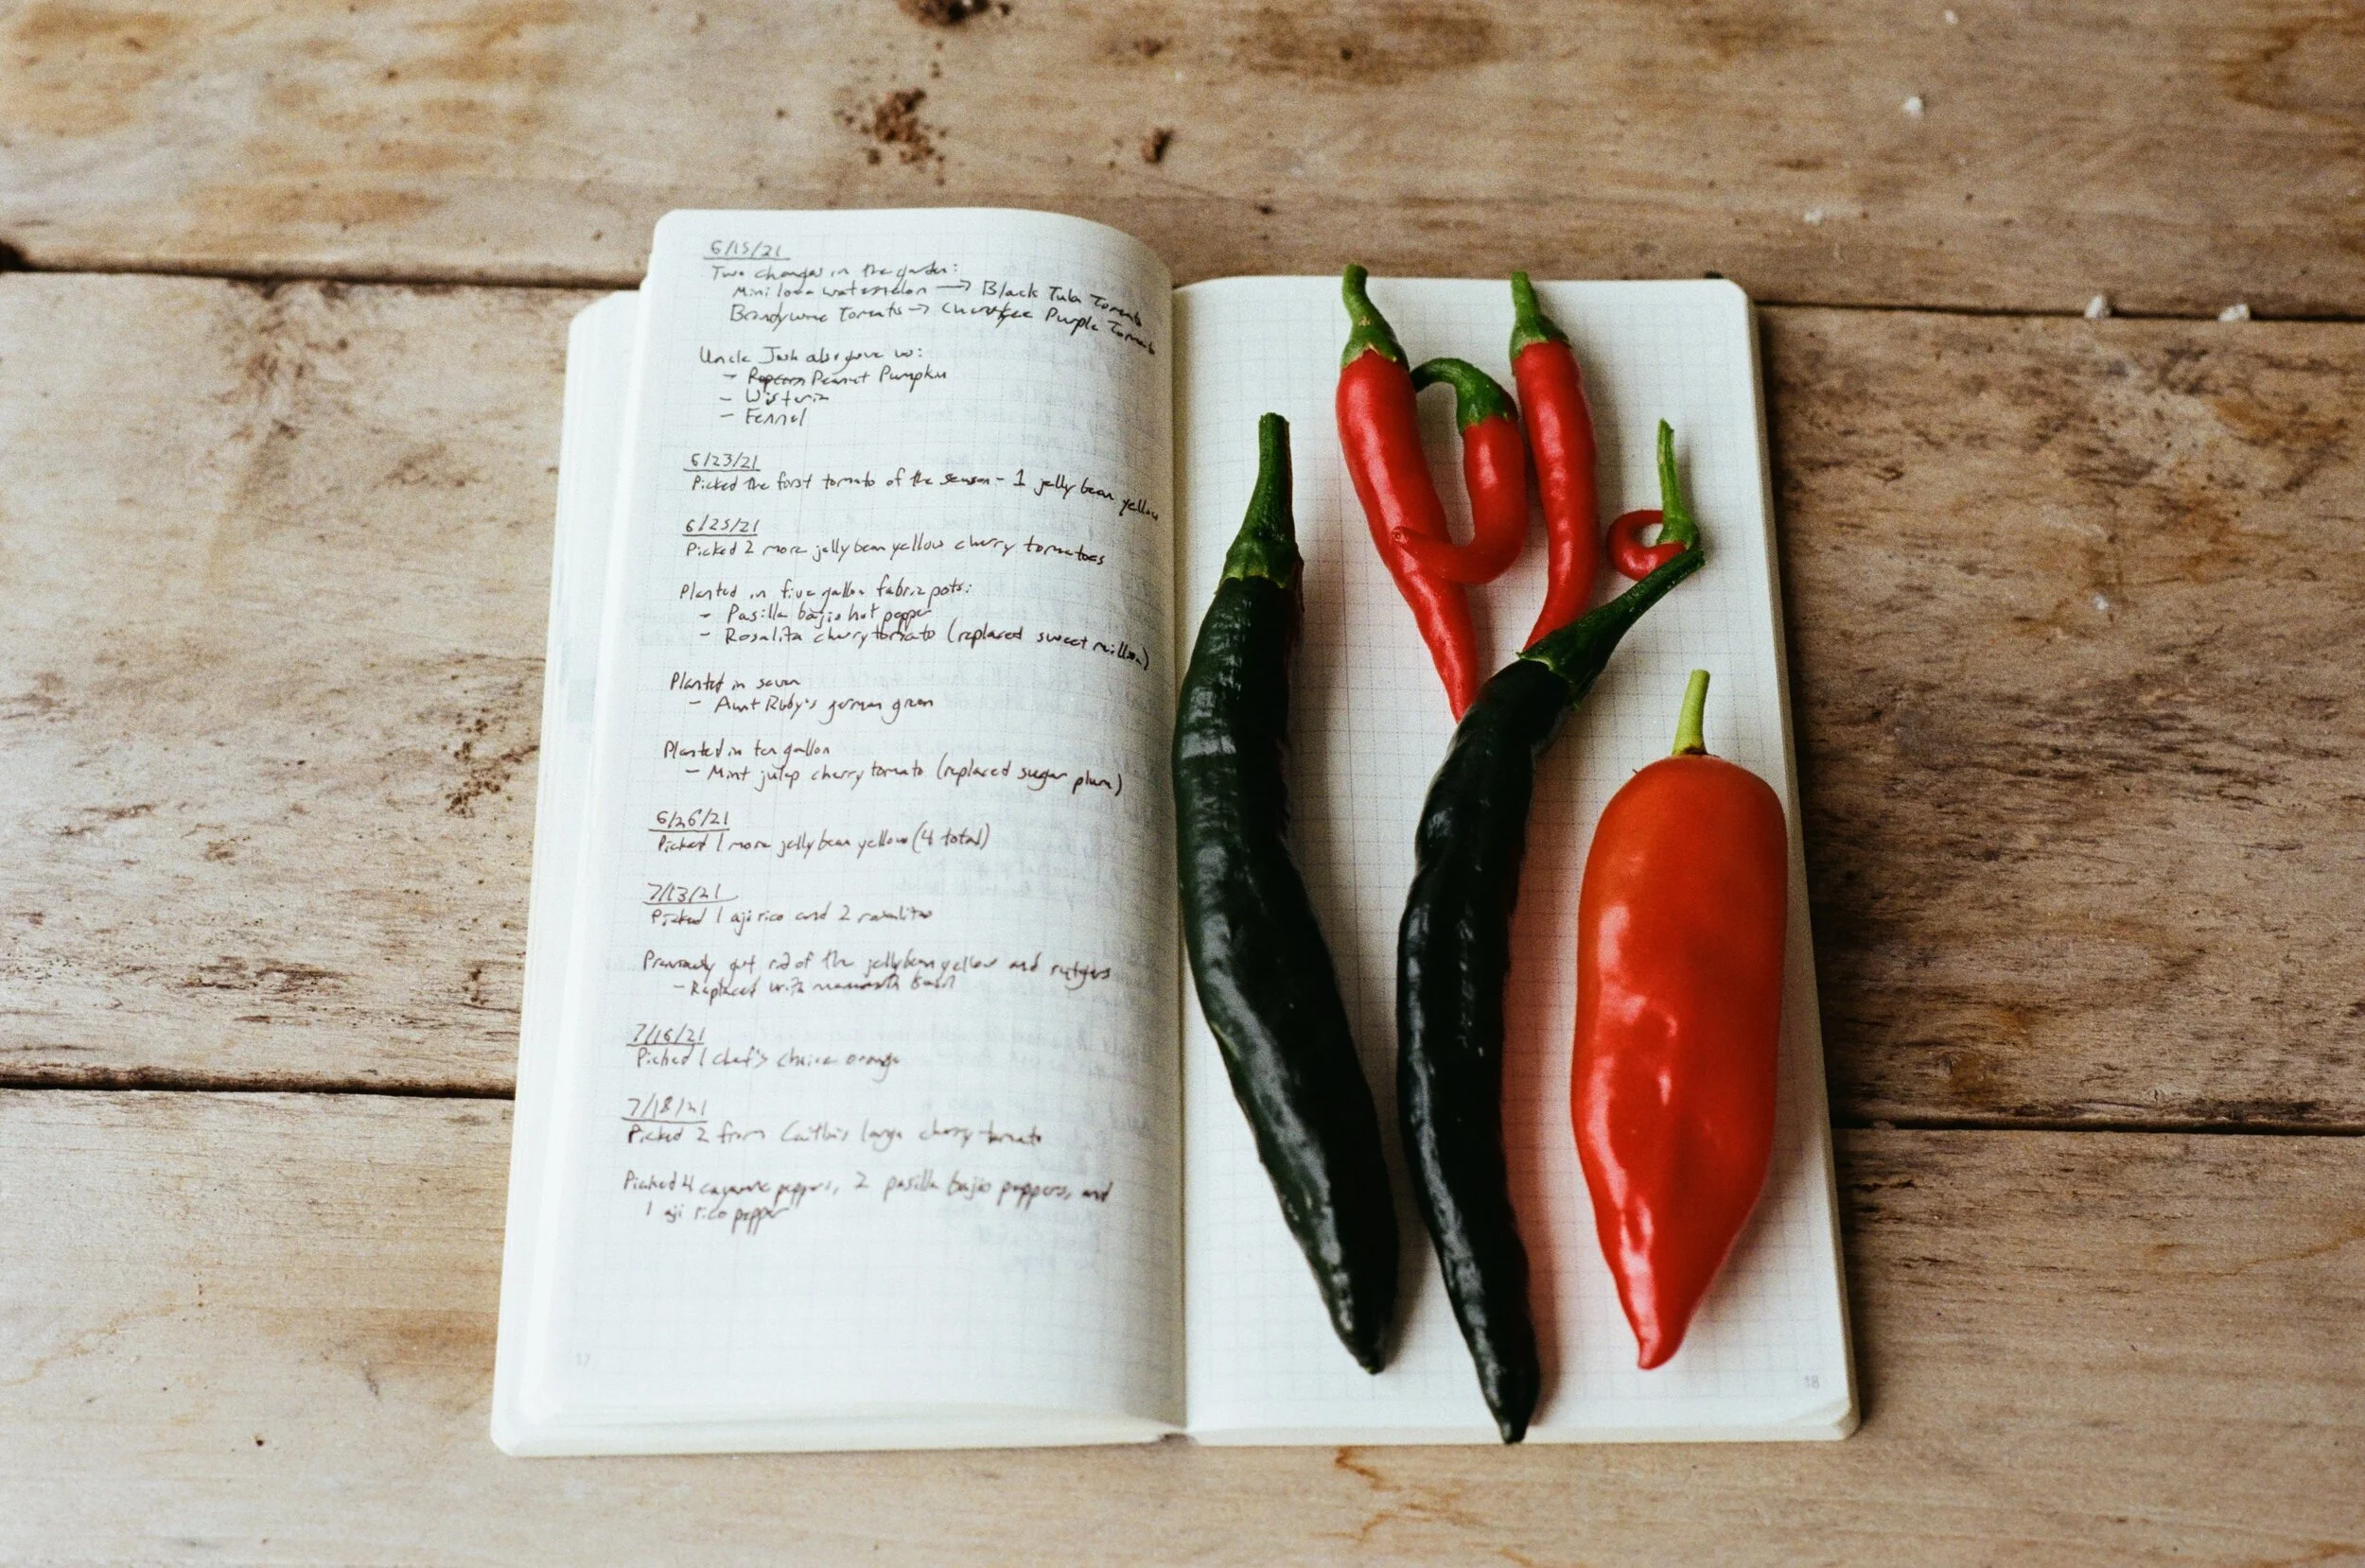 6/15/21
Two changes in the garden:
Mini love watermelon → Black Tula Tomato
Brandywine Tomato → Cherokee Purple Tomato
Uncle Josh also gave us:
- Popcorn Peanut Pumpkin
- Wisteria
- Fennel
6/23/21
Picked the first tomato of the season - 1 jelly bean yellow
6/25/21
Picked 2 more jelly bean yellow cherry tomatoes
Planted in five gallon fabric pots:
- Pasilla bajio hot pepper
- Rosalita cherry tomato (replaced sweet million)
Planted in seven
- Aunt Ruby's german green
Planted in ten gallon
- Mint julep cherry tomato (replaced sugar plum)
6/26/21
Picked 1 more jelly bean yellow (4 total)
7/13/21
Picked 1 aji rico and 2 rosalitas
Previously got rid of the jelly bean yellow and rutgers
- Replaced with mammoth basil
7/16/21
Picked 1 chef's choice orange
7/18/21
Picked 2 from Caitlin's large cherry tomato
Picked 4 cayenne peppers, 2 pasilla bajio peppers, and
1 aji rico pepper
17
18